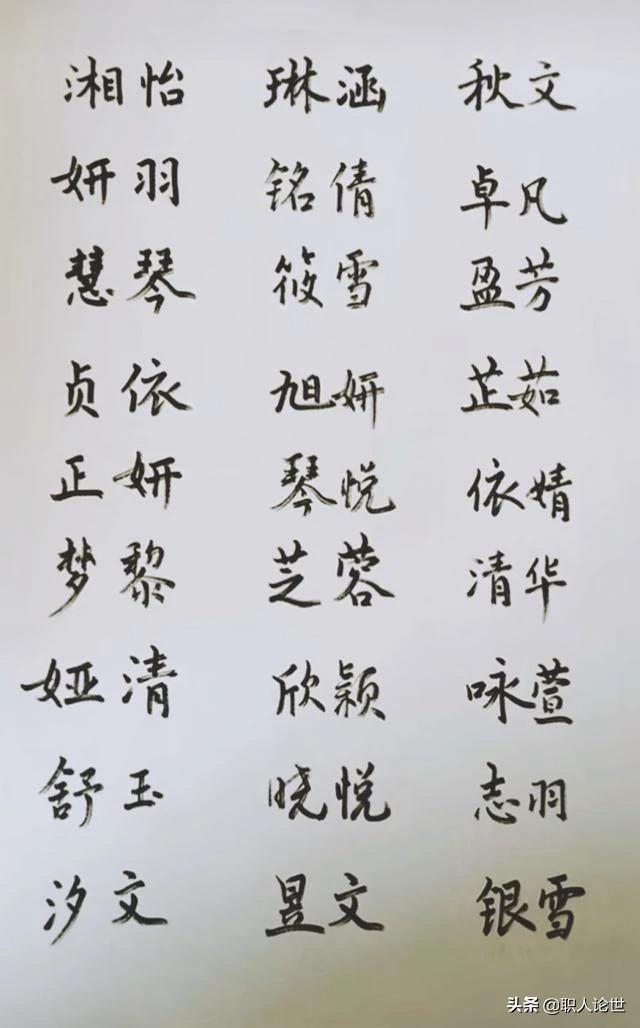 湘怡 琳涵 秋文
妍羽 铭倩 卓凡
慧琴 筱雪 盈芳
贞依 旭妍 芷茹
正妍 琴悦 依婧
梦黎 芝蓉 清华
娅清 欣颖 咏萱
舒玉 晓悦 志羽
汐文 昱文 银雪
头条 @职人论世